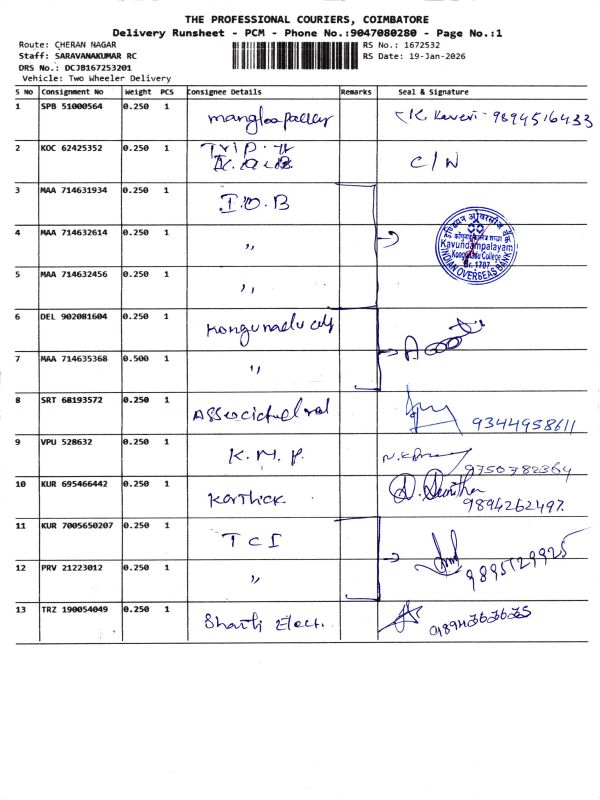 THE PROFESSIONAL COURIERS, COIMBATORE
Delivery Runsheet - PCM - Phone No.:9047080280 - Page No.:1
Route: CHERAN NAGAR
RS No.: 1672532
Staff: SARAVANAKUMAR RC
RS Date: 19-Jan-2026
DRS No.: DCJB167253201
Vehicle: Two Wheeler Delivery
S No Consignment No Weight PCS Consignee Details Remarks Seal & Signature
1 SPB 51000564 0.250 1 K. Kaveri - 9894516433
2 KOC 62425352 0.250 1 C/N
3 MAA 714631934 0.250 1 I.O.B
4 MAA 714632614 0.250 1 ,,
इण्डियन ओवरसीज बैंक
Kavundampalayam
Kongunadu College
Br. 1707
INDIAN OVERSEAS BANK
5 MAA 714632456 0.250 1 ,,
6 DEL 902081604 0.250 1 Kongunadu clg
7 MAA 714635368 0.500 1 ,,
8 SRT 68193572 0.250 1 9344958611
9 VPU 528632 0.250 1 K.M.P. 9750782364
10 KUR 695466442 0.250 1 Karthick 9894262497.
11 KUR 7005650207 0.250 1 TCI
12 PRV 21223012 0.250 1 ,, 9895129925
13 TRZ 190054049 0.250 1 Sharti Elect.